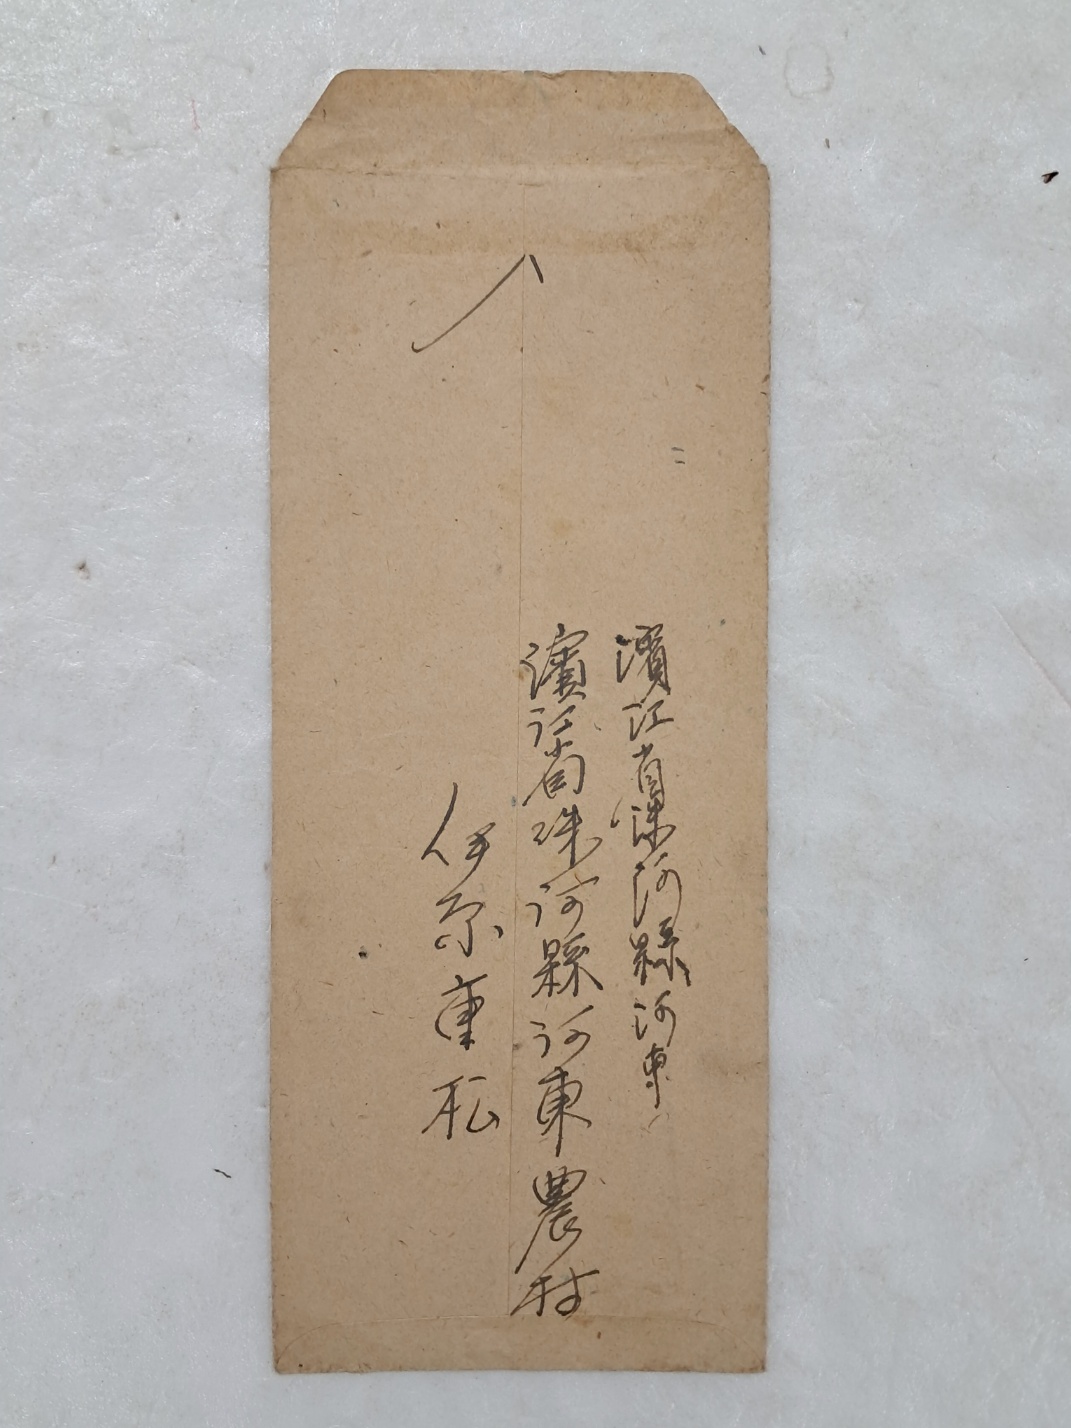 濱江省珠河縣河東
濱江省珠河縣河東農村
伊原重松